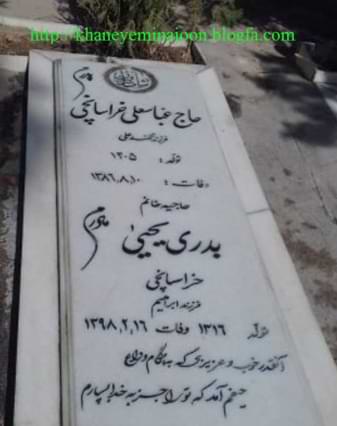 http://khaneyeminajoon.blogfa.com
پدرم
حاج عباسعلی خراسانچی
فرزند محمد علی
تولد : ۱۳۰۵
وفات : ۱۳۸۶,۸,۱۰
حاجیه خانم
مادرم
بدری یحیی
خراسانچی
فرزند ابراهیم
تولد ۱۳۱۶ وفات ۱۳۹۸,۲,۱۶
آنقدر خوب و عزیزی که به هنگام وداع
حیفم آمد که تو را جز به خدا بسپارم